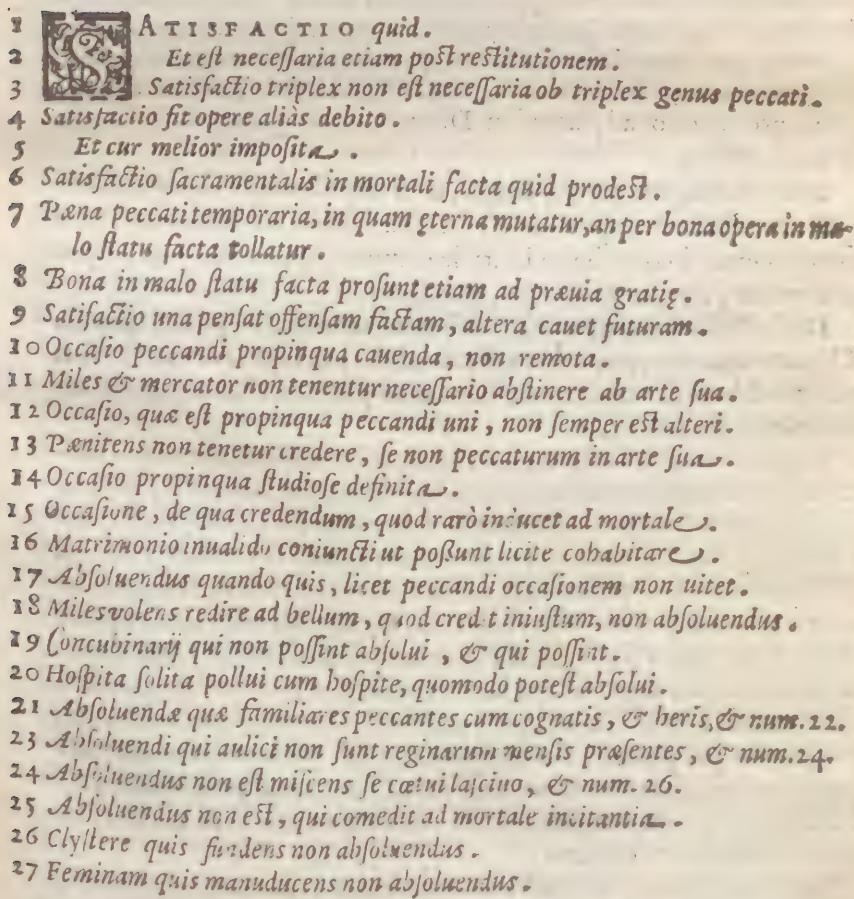 1 SATISFACTIO quid.
2 Et est necessaria etiam post restitutionem.
3 Satisfactio triplex non est necessaria ob triplex genus peccati.
4 Satisfactio fit opere aliàs debito.
5 Et cur melior imposita.
6 Satisfactio sacramentalis in mortali facta quid prodest.
7 Pæna peccati temporaria, in quam ęterna mutatur, an per bona opera in ma-
lo statu facta tollatur.
8 Bona in malo statu facta prosunt etiam ad præuia gratię.
9 Satifactio una pensat offensam factam, altera cauet futuram.
10 Occasio peccandi propinqua cauenda, non remota.
11 Miles & mercator non tenentur necessario abstinere ab arte sua.
12 Occasio, quæ est propinqua peccandi uni, non semper est alteri.
13 Pænitens non tenetur credere, se non peccaturum in arte sua.
14 Occasio propinqua studiose definita.
15 Occasione, de qua credendum, quod rarò inducet ad mortale.
16 Matrimonio inualido coniuncti ut possunt licite cohabitare.
17 Absoluendus quando quis, licet peccandi occasionem non uitet.
18 Miles volens redire ad bellum, quod credit iniustum, non absoluendus.
19 Concubinarij qui non possint absolui, & qui possint.
20 Hospita solita pollui cum hospite, quomodo potest absolui.
21 Absoluendæ quæ familiares peccantes cum cognatis, & heris, & num. 22.
23 Absoluendi qui aulici non sunt reginarum mensis præsentes, & num. 24.
24 Absoluendus non est miscens se cœtui lasciuo, & num. 26.
25 Absoluendus non est, qui comedit ad mortale incitantia.
26 Clystere quis fundens non absoluendus.
27 Feminam quis manuducens non absoluendus.